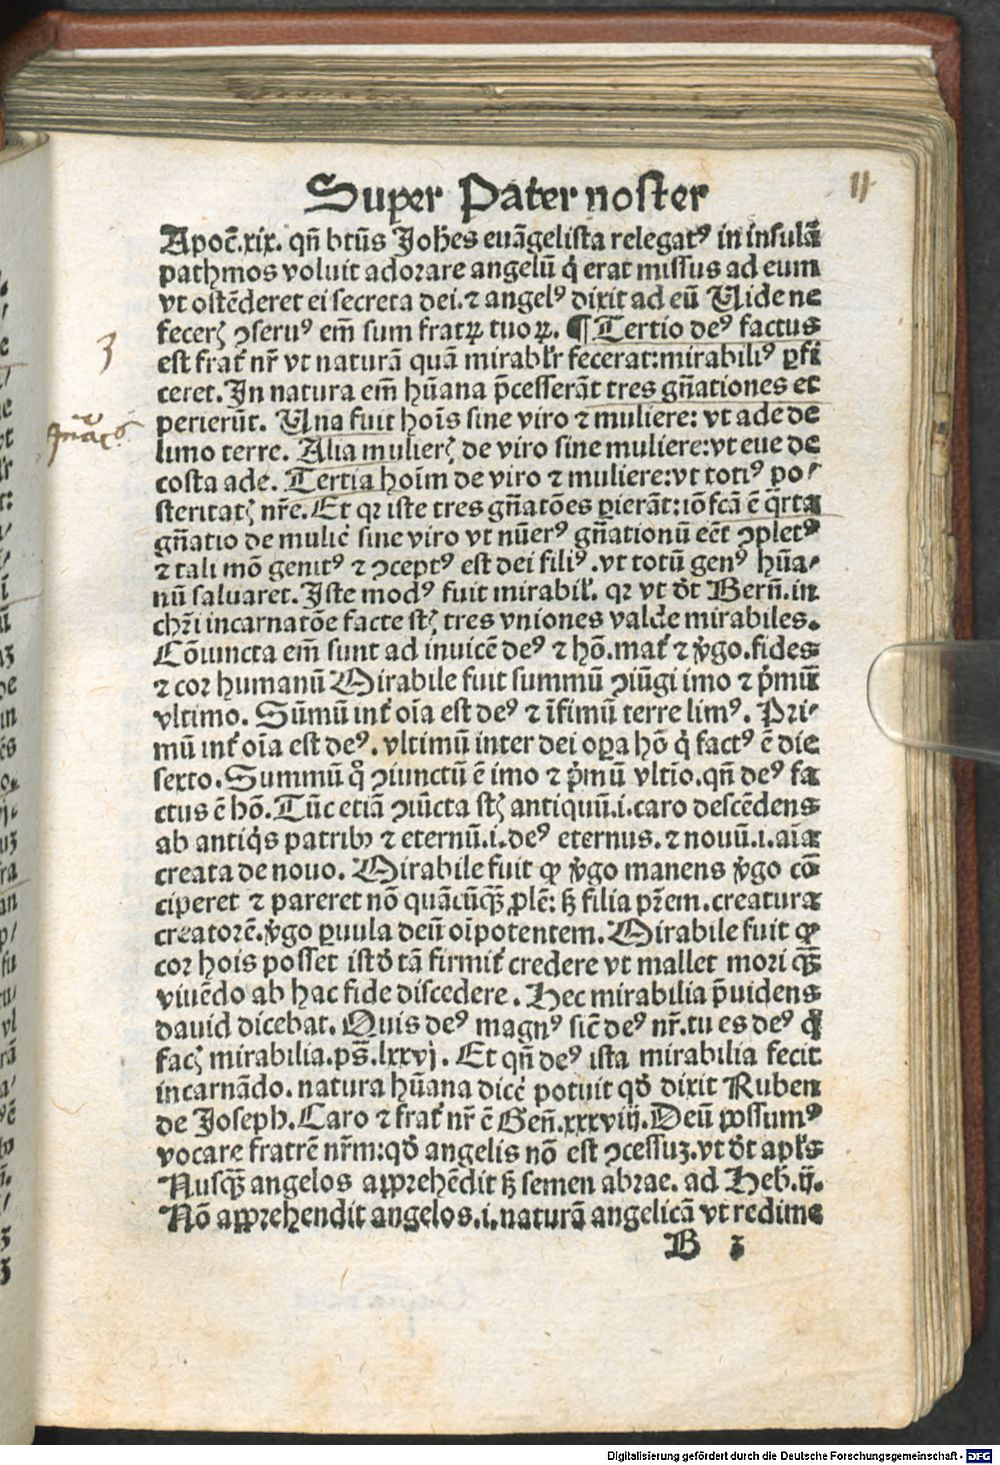 Super Pater noster
11
Apoc̄.xix. qn̄ btūs Joh̄es euāgelista relegatꝰ in insulā
pathmos voluit adorare angelū q̇ erat missus ad eum
vt ostēderet ei secreta dei.⁊ angelꝰ dixit ad eū Uide ne
fecerꝭ ꝯseruꝰ em̄ sum fratꝝ tuoꝝ. ¶ Tertio deꝰ factus
3
est frat̓ nr̄ vt naturā quā mirabl̓r fecerat:mirabiliꝰ ꝑfi
ceret. In natura em̄ hūana p̄cesserāt tres gn̄ationes et
perierūt. Una fuit hoīs sine viro ⁊ muliere: vt ade de
limo terre. Alia mulierꝭ de viro sine muliere:vt eue de
costa ade. Tertia hoīm de viro ⁊ muliere:vt totiꝰ po⸗
steritatꝭ nr̄e. Et qꝛ iste tres gn̄atōes ꝑierāt:iō fcā ē q̄rta
gn̄atio de mulie̓ sine viro vt nūerꝰ gn̄ationū eēt ꝯpletꝰ
⁊ tali mō genitꝰ ⁊ ꝯceptꝰ est dei filiꝰ.vt totū genꝰ hūa⸗
nū saluaret. Iste modꝰ fuit mirabil̓. qꝛ vt dt̄ Bern̄. in
chr̄i incarnatōe facte st̄ꝭ tres vniones valde mirabiles.
Cōiuncta em̄ sunt ad inuicē deꝰ ⁊ hō.mat̓ ⁊ v̓go.fides
⁊ cor humanū Mirabile fuit summū ꝯiūgi imo ⁊ p̓mū
vltimo. Sūmū int̓ oīa est deꝰ ⁊ īfimū terre limꝰ. Pri⸗
mū int̓ oīa est deꝰ. vltimū inter dei oꝑa hō q̇ factꝰ ē die
sexto. Summū qͦ ꝯiunctū ē imo ⁊ p̓mū vltīo.qn̄ deꝰ fa
ctus ē hō. Tūc etiā ꝯiūcta st̄ꝭ antiquū.i.caro descēdens
ab antiq̇s patribꝰ ⁊ eternū.i.deꝰ eternus.⁊ nouū.i.aīa
creata de nouo. Mirabile fuit ꝙ v̓go manens v̓go cō
ciperet ⁊ pareret nō quācūqꝫ ꝓlē: sꝫ filia pr̄em.creatura
creatorē.v̓go ꝑuula deū oīpotentem. Mirabile fuit ꝙ
cor hoīs posset istd̓ tā firmit̓ credere vt mallet mori q̄ꝫ
viuēdo ab hac fide discedere. Hec mirabilia p̄uidens
dauid dicebat. Quis deꝰ magnꝰ sic̄ deꝰ nr̄.tu es deꝰ q̇
facꝭ mirabilia.ps̄.lxxvj. Et qn̄ deꝰ ista mirabilia fecit
incarnādo.natura hūana dice̓ potuit qd̓ dixit Ruben
de Joseph. Caro ⁊ frat̓ nr̄ ē Gen̄.xxxviij. Deū possumꝰ
vocare fratrē nr̄m:qd̓ angelis nō est ꝯcessuꝫ.vt dt̄ apl̓s
Nusqꝫ angelos apprehēdit sꝫ semen abrae. ad Heb.ij.
Nō apprehendit angelos.i.naturā angelicā vt redime
B 3
Digitalisierung gefördert durch die Deutsche Forschungsgemeinschaft - DFG